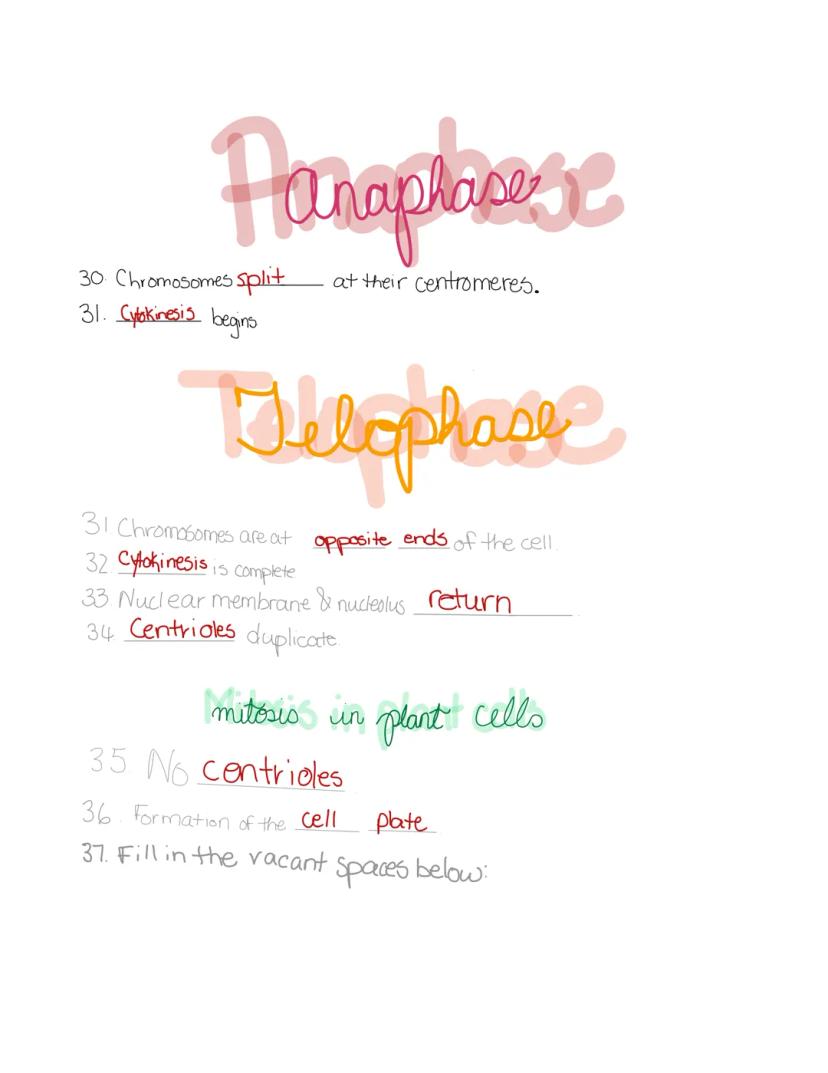 Anaphase
anaphase
30. Chromosomes split at their centromeres.
31. Cytokinesis begins
Telophase
Telophase
31 Chromosomes are at opposite ends of the cell.
32 Cytokinesis is complete
33 Nuclear membrane & nucleolus return
34 Centrioles duplicate.
Mitosis in plant cells
mitosis in plant cells
35 No centrioles
36. Formation of the cell plate
37. Fill in the vacant spaces below: